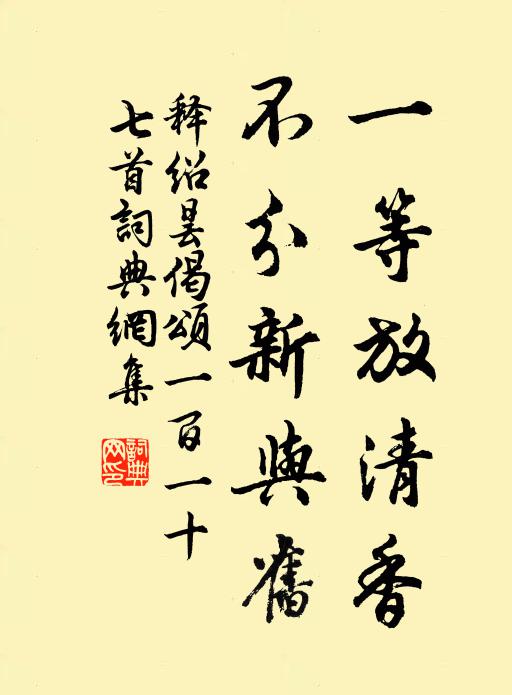 一等放清香
不分新與舊
释绍昙偈頌一百一十
七首詞典網集
詞典网印